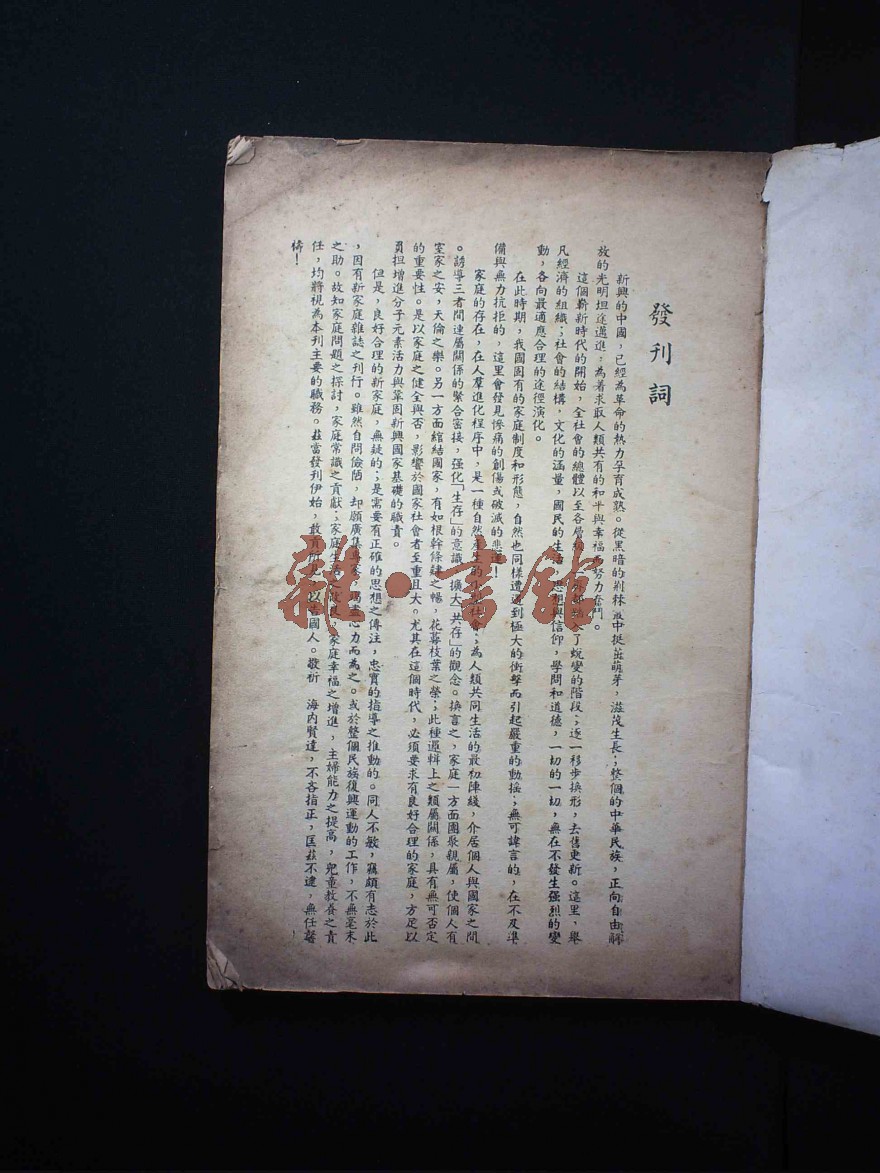 發刊詞
新興的中國，已經為革命的熱力孕育成熟。從黑暗的荊棘叢中挺茁萌芽，滋茂生長；整個的中華民族，正向自由解
放的光明坦途邁進；為着求取人類共有的和平與幸福而努力奮鬥。
這個嶄新時代的開始，全社會的總體以至各層了蛻變的階段；逐一移步換形，去舊更新。這里，舉
凡經濟的組織；社會的結構，文化的涵量，國民的生活，思想與信仰，學問和道德，一切的一切，無在不發生强烈的變
動，各向最適應合理的途徑演化。
在此時期，我國固有的家庭制度和形態，自然也同樣遭遇到極大的衝擊而引起嚴重的動搖；無可諱言的，在不及準
備與無力抗拒的，這里會發見慘痛的創傷或破滅的悲運！
家庭的存在，在人羣進化程序中，是一種自然產生的社會；為人類共同生活的最初陣綫，介居個人與國家之間
。誘導三者間連屬關係的緊合密接，强化「生存」的意識，擴大「共存」的觀念。換言之，家庭一方面團聚親屬，使個人有
室家之安，天倫之樂。另一方面綰結國家，有如根幹條肄之暢，花萼枝葉之榮；此種邏輯上之類屬關係，具有無可否定
的重要性。是以家庭之健全與否，影響於國家社會者至重且大。尤其在這個時代，必須要求有良好合理的家庭，方足以
負担增進分子元素活力與鞏固新興國家基礎的職責。
但是，良好合理的新家庭，無疑的；是需要有正確的思想之傳注，忠實的指導之推動的。同人不敏，竊頗有志於此
，因有新家庭雜誌之刊行。雖然自問儉陋，却願廣集專家，竭盡心力而為之。或於整個民族復興運動的工作，不無毫末
之助。故知家庭問題之探討，家庭常識之貢獻；家庭生活之改良，家庭幸福之增進，主婦能力之提高，兒童教養之責
任，均將視為本刊主要的職務。茲當發刊伊始，敢貢所見，以告國人。敬祈　海内賢達，不吝指正，匡茲不逮，無任馨
禱！
雜·書館